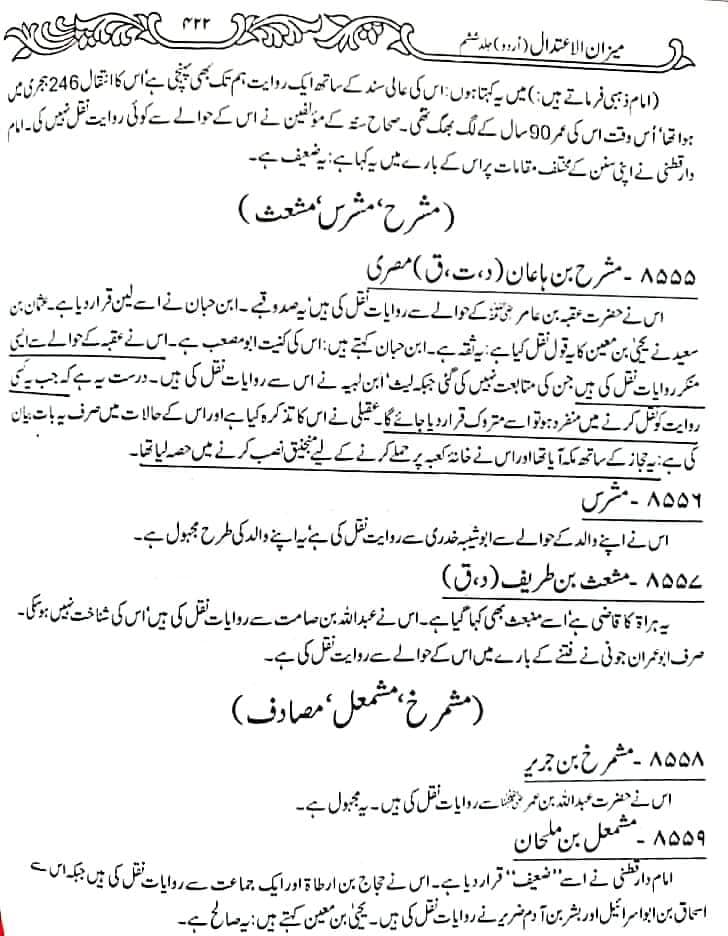 میزان الاعتدال (اُردو) جلد ششم
۴۲۲
(امام ذہبی فرماتے ہیں:) میں یہ کہتا ہوں: اس کی عالی سند کے ساتھ ایک روایت ہم تک بھی پہنچی ہے' اس کا انتقال 246 ہجری میں
ہوا تھا' اُس وقت اس کی عمر 90 سال کے لگ بھگ تھی۔ صحاح ستہ کے مؤلفین نے اس کے حوالے سے کوئی روایت نقل نہیں کی۔ امام
دارقطنی نے اپنی سنن کے مختلف مقامات پر اس کے بارے میں یہ کہا ہے: یہ ضعیف ہے۔
(مشرح' مشرس' مشعث)
۸۵۵۵ - مشرح بن ہاعان (د، ت، ق) مصری
اس نے حضرت عقبہ بن عامر رضی اللہ عنہ کے حوالے سے روایات نقل کی ہیں' یہ صدوق ہے۔ ابن حبان نے اسے لین قرار دیا ہے۔ عثمان بن
سعید نے یحییٰ بن معین کا یہ قول نقل کیا ہے: یہ ثقہ ہے۔ ابن حبان کہتے ہیں: اس کی کنیت ابومصعب ہے۔ اس نے عقبہ کے حوالے سے ایسی
منکر روایات نقل کی ہیں جن کی متابعت نہیں کی گئی جبکہ لیث' ابن لہیعہ نے اس سے روایات نقل کی ہیں۔ درست یہ ہے کہ جب یہ کسی
روایت کو نقل کرنے میں منفرد ہو تو اسے متروک قرار دیا جائے گا۔ عقیلی نے اس کا تذکرہ کیا ہے اور اس کے حالات میں صرف یہ بات بیان
کی ہے: یہ حجاز کے ساتھ مکہ آیا تھا اور اس نے خانۂ کعبہ پر حملے کرنے کے لیے منجنیق نصب کرنے میں حصہ لیا تھا۔
۸۵۵۶ - مشرس
اس نے اپنے والد کے حوالے سے ابوشیبہ خدری سے روایت نقل کی ہے' یہ اپنے والد کی طرح مجہول ہے۔
۸۵۵۷ - مشعث بن طریف (د، ق)
یہ ہراۃ کا قاضی ہے' اسے منبعث بھی کہا گیا ہے۔ اس نے عبداللہ بن صامت سے روایات نقل کی ہیں' اس کی شناخت نہیں ہو سکی۔
صرف ابوعمران جونی نے فتنے کے بارے میں اس کے حوالے سے روایت نقل کی ہے۔
(مشمرخ' مشمعل' مصادف)
۸۵۵۸ - مشمرخ بن جریر
اس نے حضرت عبداللہ بن عمر رضی اللہ عنہما سے روایات نقل کی ہیں۔ یہ مجہول ہے۔
۸۵۵۹ - مشمعل بن ملحان
امام دارقطنی نے اسے "ضعیف" قرار دیا ہے۔ اس نے حجاج بن ارطاۃ اور ایک جماعت سے روایات نقل کی ہیں جبکہ اس سے
اسحاق بن ابواسرائیل اور بشر بن آدم ضریر نے روایات نقل کی ہیں۔ یحییٰ بن معین کہتے ہیں: یہ صالح ہے۔